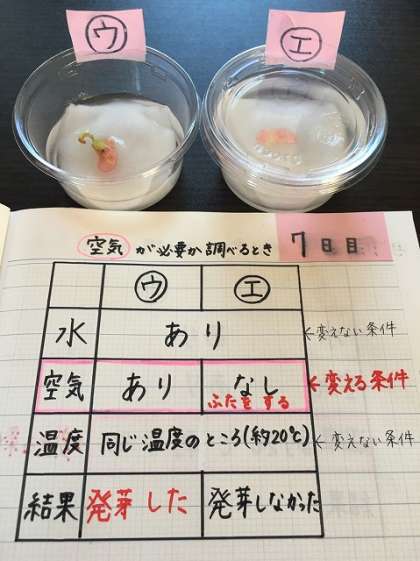 ウ
エ
空気が必要か調べるとき
7日目
ウ エ
水 あり ←変えない条件
空気 あり なし ←変える条件
ふたをする
温度 同じ温度のところ(約20℃) ←変えない条件
結果 発芽した 発芽しなかった